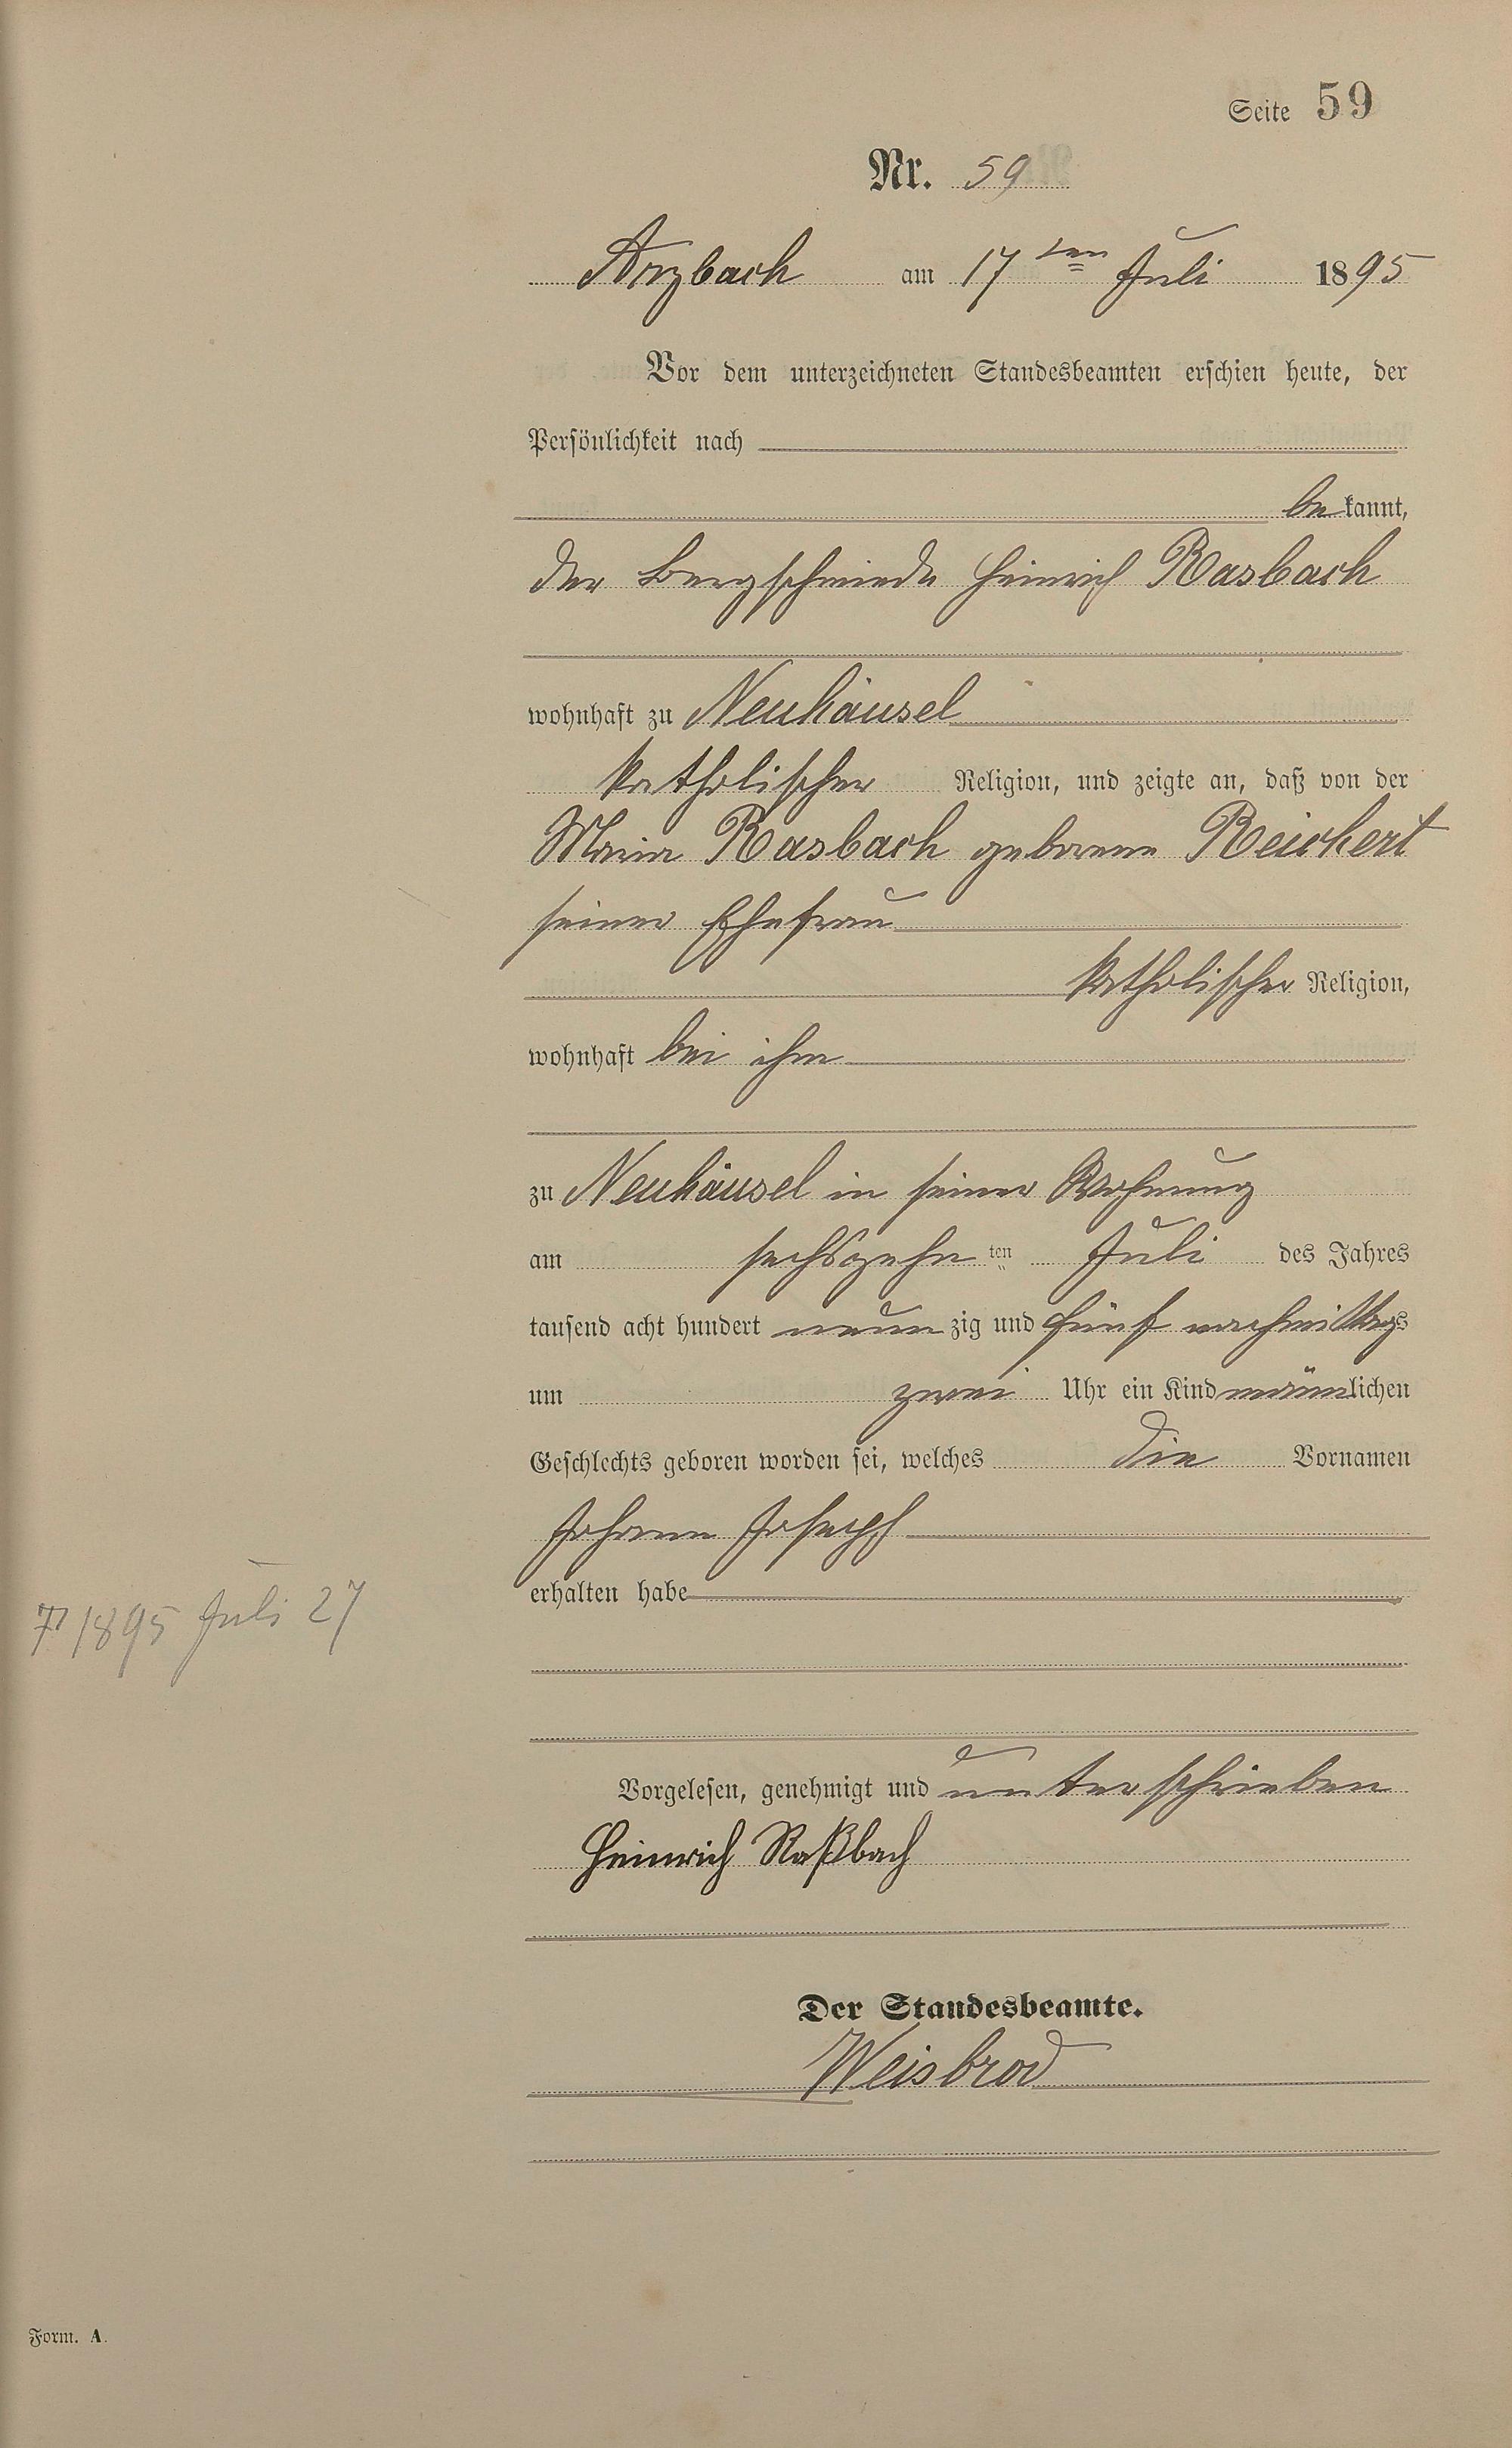 Seite 59
Nr. 59
Arzbach am 17ten Juli 1895
Vor dem unterzeichneten Standesbeamten erschien heute, der
Persönlichkeit nach
be kannt,
der Bergschmiede Heinrich Rasbach
wohnhaft zu Neuhäusel
katholischer Religion, und zeigte an, daß von der
Maria Rasbach geborene Reichert
seiner Ehefrau
katholischer Religion,
wohnhaft bei ihm
zu Neuhäusel in seiner Wohnung
am sechszehn ten Juli des Jahres
tausend acht hundert neun zig und fünf nachmittags
um zwei Uhr ein Kind männlichen
Geschlechts geboren worden sei, welches die Vornamen
Johann Joseph
erhalten habe
1895 Juli 27
Vorgelesen, genehmigt und unterschrieben
Heinrich Raßbach
Der Standesbeamte.
Weisbrod
Form. A.